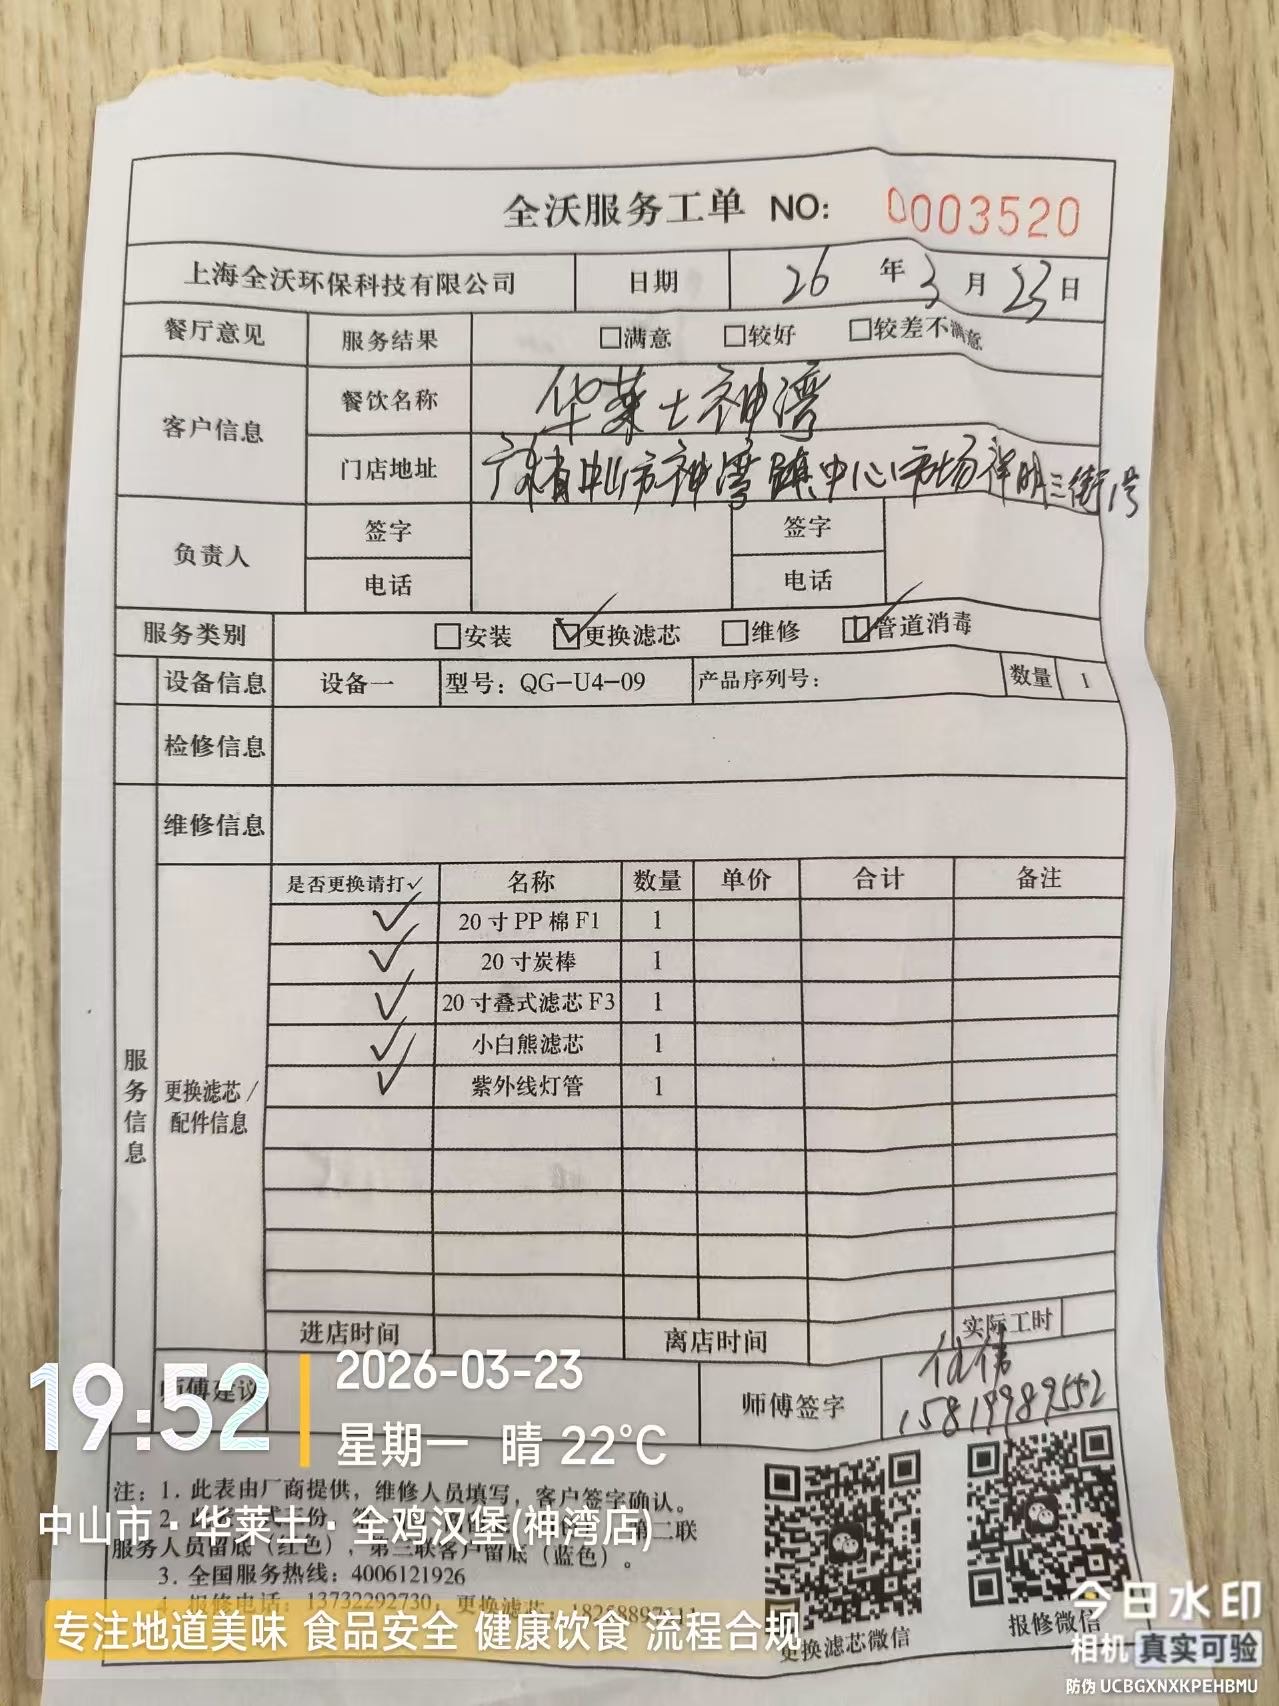 全沃服务工单 NO: 0003520
上海全沃环保科技有限公司 日期 26 年 3 月 23 日
餐厅意见 服务结果 □满意 □较好 □较差不满意
客户信息 餐饮名称 华莱士神湾
门店地址 广东省中山市神湾镇中心市场祥明三街1号
负责人 签字 签字
电话 电话
服务类别 □安装 ☑更换滤芯 □维修 ☑管道消毒
设备信息 设备一 型号：QG-U4-09 产品序列号： 数量 1
检修信息
维修信息
服务信息
更换滤芯/
配件信息
是否更换请打✓ 名称 数量 单价 合计 备注
✓ 20寸PP棉F1 1
✓ 20寸炭棒 1
✓ 20寸叠式滤芯F3 1
✓ 小白熊滤芯 1
✓ 紫外线灯管 1
进店时间 离店时间 实际工时
师傅建议 师傅签字
15819989552
19:52
2026-03-23
星期一 晴 22°C
中山市·华莱士·全鸡汉堡(神湾店)
注：1. 此表由厂商提供，维修人员填写，客户签字确认。
第二联
服务人员留底（红色），第三联客户留底（蓝色）。
3. 全国服务热线：4006121926
4. 报修电话：13732292730，更换滤芯：
专注地道美味 食品安全 健康饮食 流程合规
更换滤芯微信
报修微信
今日水印
相机 真实可验
防伪 UCBGXNXKPEHBMU